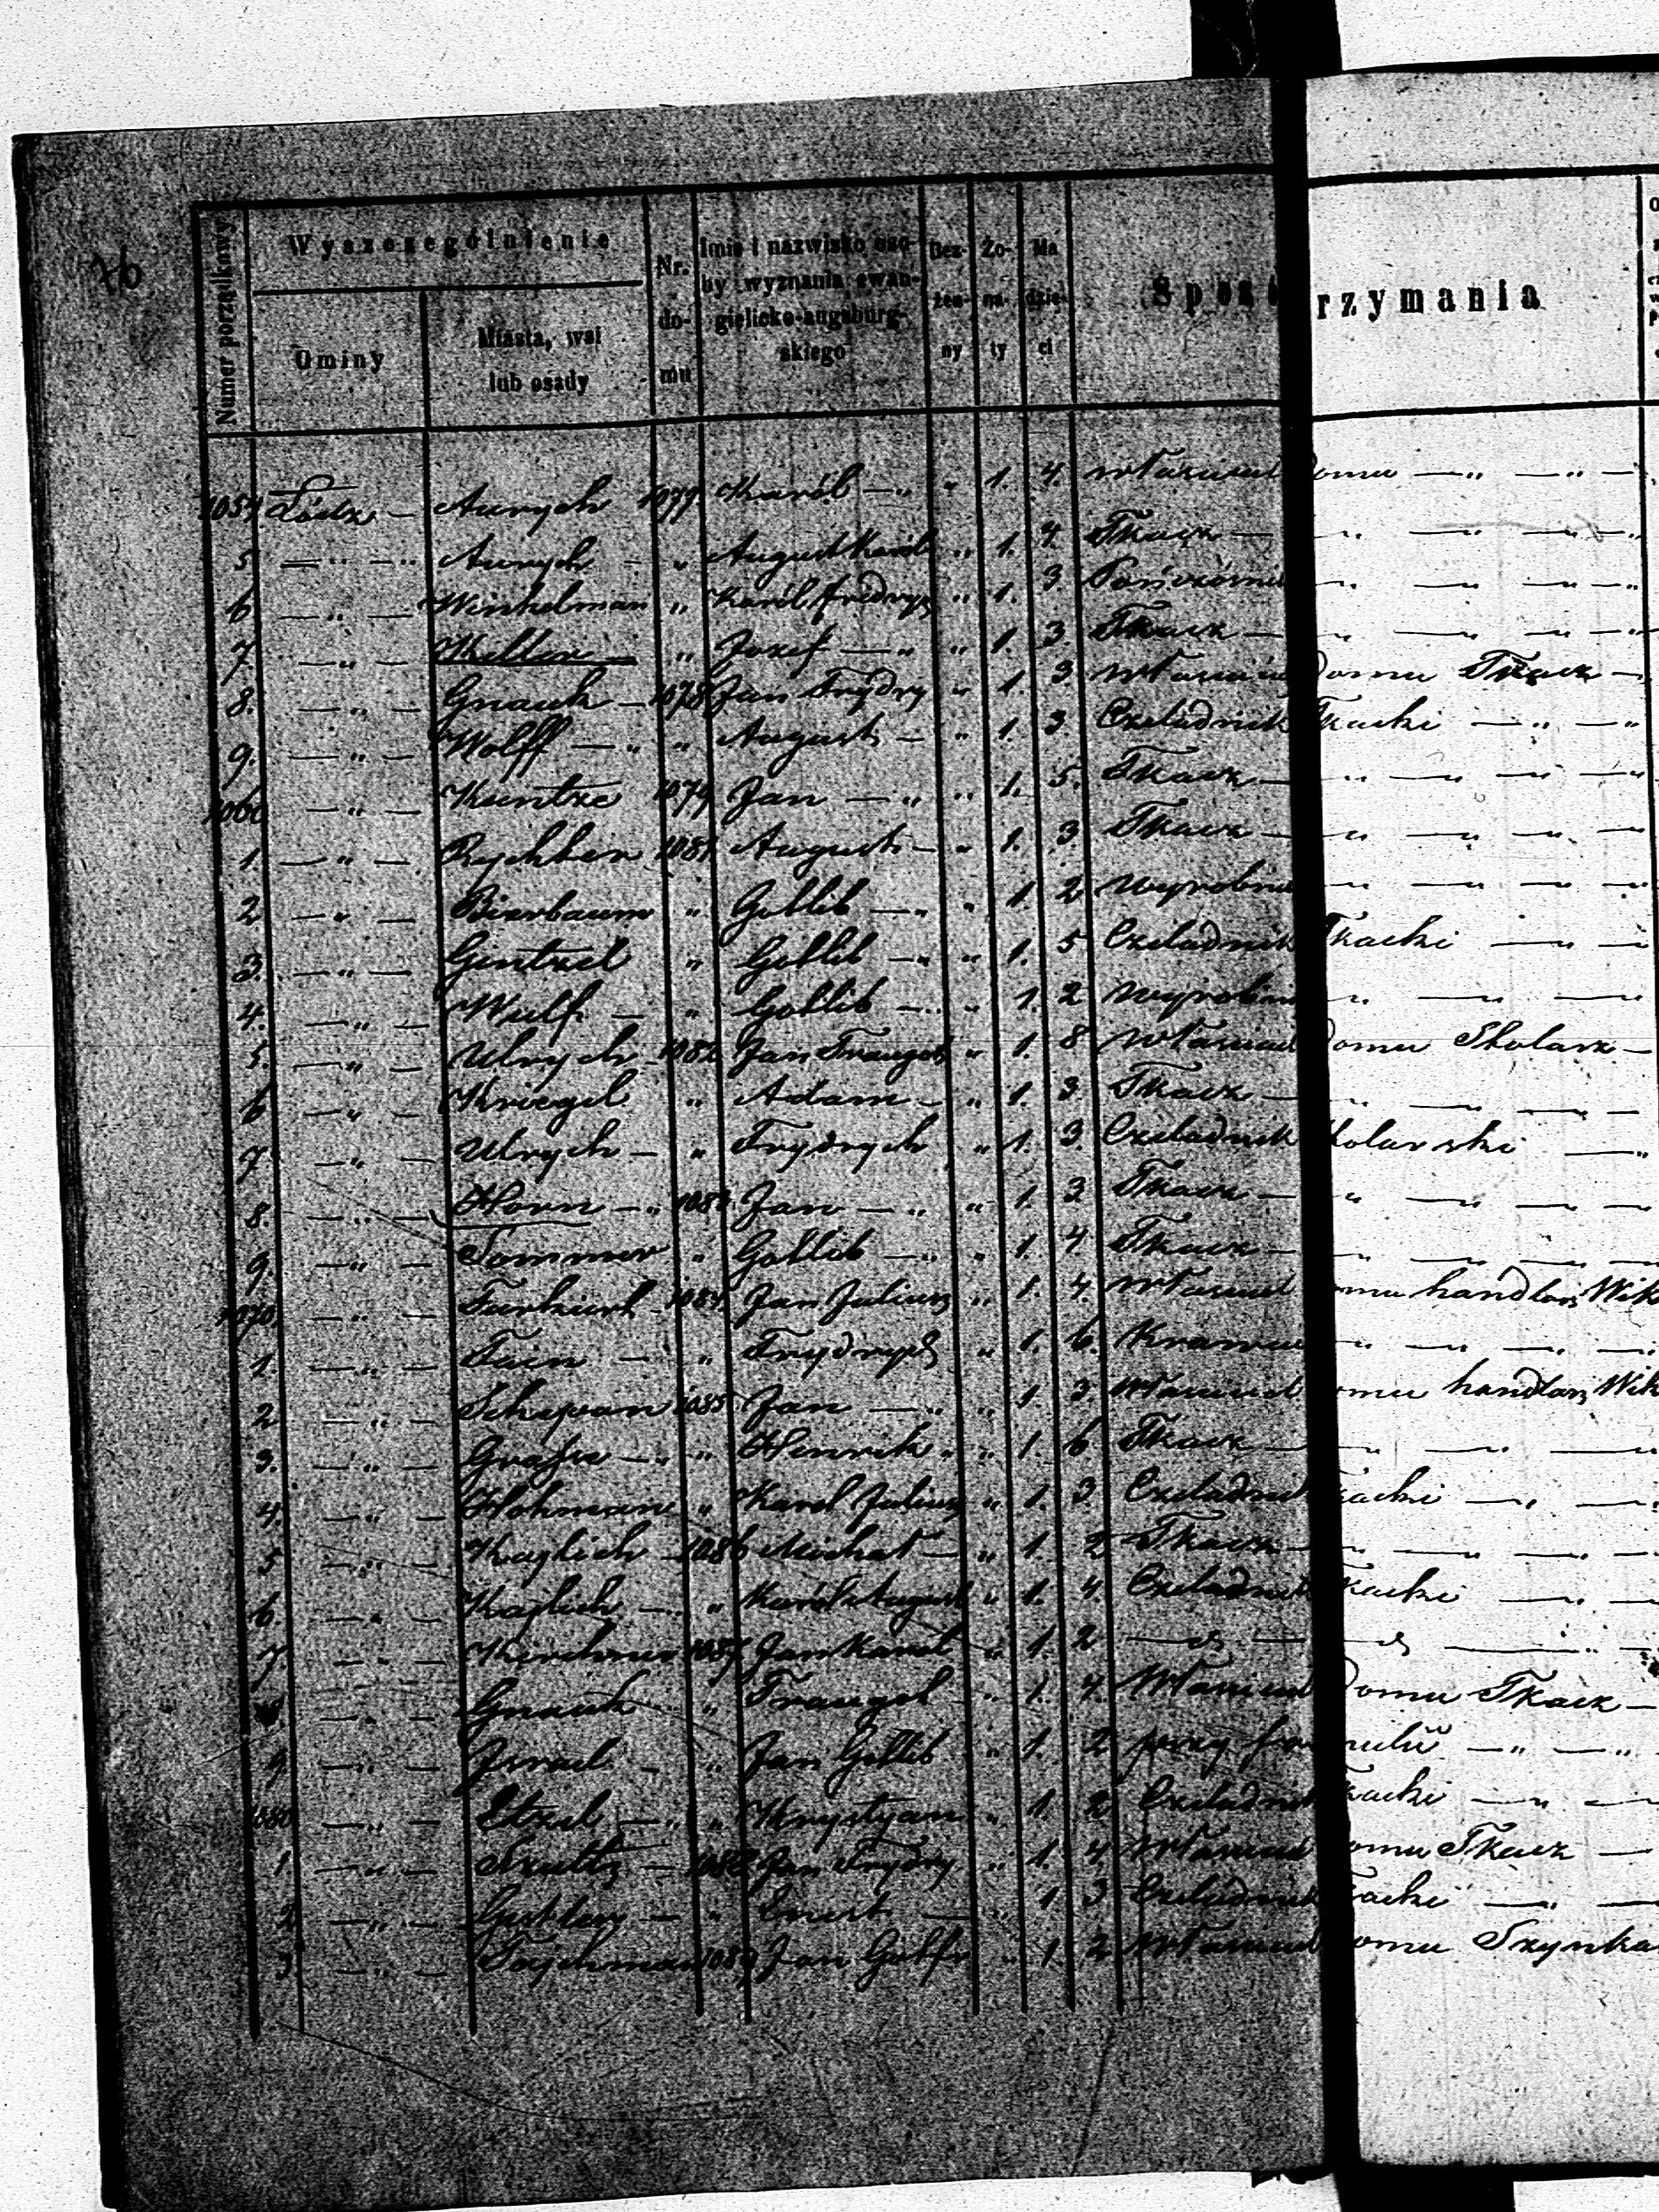 76
Numer porządkowy
Wyszczególnienie
Gminy
Miasta, wsi lub osady
Nr. domu
Imie i nazwisko osoby wyznania ewangielicko-augsburgskiego
Bezżenny
Żonaty
Ma dzieci
Sposó rzymania
1054 Łódz — Aurych 1077 Karól — „ „ 1. 4. własciciel domu — „ — „ —
5 — „ — „ Aurych — „ August Karól „ 1. 4. Tkacz —
6 — „ — Winkelman „ Karól Frÿdrych „ 1. 3. Pończosznik
7. — „ — Keller — „ Jozef — „ „ 1. 3. Tkacz —
8. — „ — Gnauk — 1078 Jan Frydry „ 1. 3. własciciel domu Tkacz —
9. — „ — Wolff — „ „ August — „ 1. 3. Czeladnik Tkacki — „ — „
1060 — „ — Kuntze 1079 Jan — „ „ 1. 5. Tkacz —
1. — „ — Rychter 1081 August — „ 1. 3 Tkacz —
2 — „ — Bierbaum „ Gotlib — „ „ 1. 2 wyrobnik
3. — „ — Gintzel „ Gotlib — „ „ 1. 5 Czeladnik Tkacki — „ —
4. — „ — Wulf — „ Gotlib — „ „ 1. 2 wyrobnik
5. — „ — Ulrych — 1082 Jan Traugot „ 1. 8 własciciel domu Stolarz —
6 — „ — Kriegel „ Adam — „ 1. 3. Tkacz —
7 — „ — Ulrych — „ Frydrych „ 1. 3. Czeladnik Stolarski — „
8. — „ — Horn — „ 1083 Jan — „ „ 1. 3 Tkacz —
9. — „ — Sommer „ Gotlib — „ „ 1. 4 Tkacz —
1070. — „ — 1084. Jan Juliusz „ 1. 4. własciciel domu handlarz Wik
1. — „ — Fain — „ Frydrych „ 1. 6. Krawiec
2 — „ — 1085 Jan — „ „ 1. 3. własciciel domu handlarz Wik
3. — „ — Grafe — „ „ Henrik „ „ 1. 6 Tkacz —
4. — „ — Hohman „ Karol Juliusz „ 1. 3 Czeladnik Tkacki — „ —
5 — „ — Kajlich — 1086 Michał — „ 1. 2 Tkacz —
6. — „ — Kajlich — „ „ Karól August „ 1. 4. Czeladnik Tkacki — „ —
7. — „ — Kirchner 1087 Jan Karol „ 1. 2
— „ — Gnauk „ Traugot „ 1. 4. Własciciel domu Tkacz —
9 — „ — Israel — „ Jan Gotlib „ 1. 2 przy familii — „ — „
1080 — „ — Etzel — „ „ Krystyan „ 1 2 Czeladnik Tkacki — „ —
1 — „ — Szultz — 1088 Jan Frydry „ 1. 4 własciciel domu Tkacz —
2 — „ — — „ Ernst — „ 1 3 Czeladnik Tkacki — „ —
3 — „ — Tajchman 1089 Jan Gotfr „ 1. 2 własciciel domu Szynka